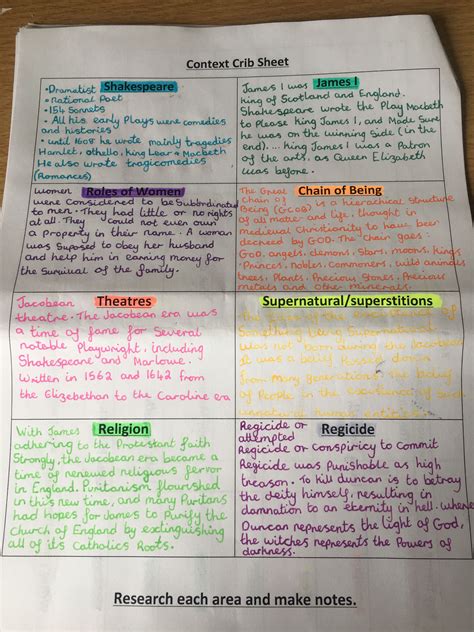 Context Crib Sheet
Shakespeare
•Dramatist
•national Poet
•154 Sonnets
• All his early Plays were comedies
and histories
• until 1608 he wrote mainly tragedies
Hamlet, othello, king Lear & Macbeth
He also wrote tragicomedies
(Romances)
James I
James I was
king of Scotland and England.
Shakespeare wrote the Play Macbeth
to Please king James I, and Made Sure
he was on the winning Side (in the
end).... king James I was a Patron
of the arts, as Queen Elizabeth
was before.
Roles of Women
women
were considered to be Subordinated
to men. They had little or no rights
at all. They could not even own
a Property in their name. A woman
was Suposed to obey her husband
and help him in earning money for
the Survival of the family.
Chain of Being
The Great
Chain of
Being (GCOB) is a hierachical structure
of all matter and life, thought in
medieval Christianity to have been
decreed by GOD. The chain goes
GOD, angels, demons, Stars, moons, kings
Princes, Nobles, Commoners, wild animals
trees, Plants, Precious Stones, Precious
metals and other minerals.
Theatres
Jacobean
theatre. The Jacobean era was
a time of fame for Several
notable Playwright, including
Shakespeare and Marlowe.
Written in 1562 and 1642 from
the Elizebethan to the Caroline era
Supernatural/superstitions
Something being Supernatural
was not born during the Jacobean
It was a belief Passed down
from Many generations. The belief
of People in the existence of such
entities.
Religion
With James
adhering to the Protestant faith
Strongly, the Jacobean era became a
time of renewed religious fervor
in England. Puritanism flourished
in this new time, and many Puritans
had hopes for James to Purify the
Church of England by extinguishing
all of its Catholics Roots.
Regicide
Regicide or
attempted
Regicide or conspiricy to Commit
Regicide was Punishable as high
treason. To kill duncan is to betray
the deity himself, resulting in
damnation to an eternity in hell. where
Duncan represents the light of God,
the witches represents the Powers of
darkness.
Research each area and make notes.